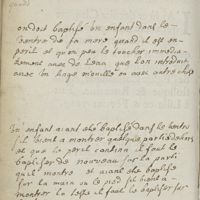 quand
on doit baptiser un enfant dans le
ventre de sa mere quand il est en
peril et qu'on peu le toucher immedia-
tement avec de l'eau que lon introduit
avec un linge mouillé ou avec autre chose
Un enfant aiant ete baptisé dans le ventre
s'il vient a montrer quelque partie dehors
et que le peril continu il faut le
baptiser de nouveau sur la partie
qu'il montre et aiant ete baptisé
sur la main ou le pied s'il vient a
montrer la teste il faut le baptiser sur